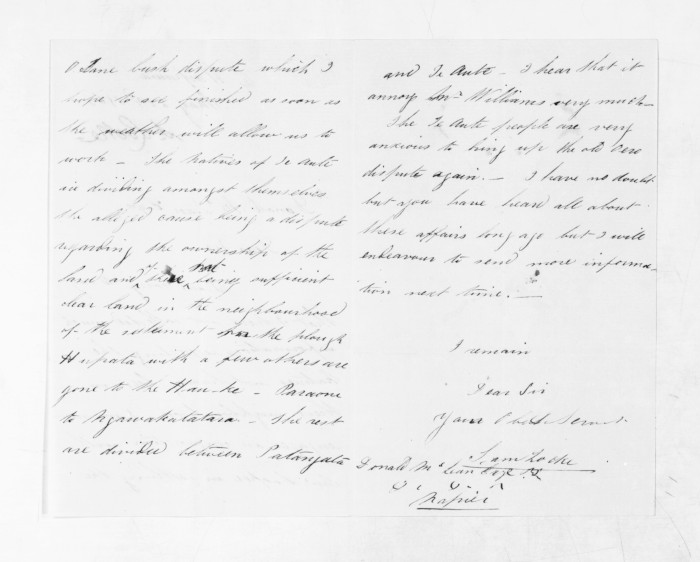 Olane bush dispute which I
hope to see finished as soon as
the weather will allow us to
work - The Natives of Te Aute
are dividing amongst themselves
the alleged cause being a dispute
regarding the ownership of the
land and there not being sufficient
clear land in the neighbourhood
of the settlement for the plough
Hupata with a few others are
gone to the Hauke - Paraone
to Ngawakatatara - The rest
are divided between Patangata
and Te Aute - I hear that it
annoys Mr Williams very much -
The Te Aute people are very
anxious to bring up the old
dispute again. - I have no doubt
but you have heard all about
these affairs long ago but I will
endeavour to send more informa-
tion next time. -
I remain
Dear Sir
Your Obdt Servt
Saml Locke
Donald McLean Esqr
Napier